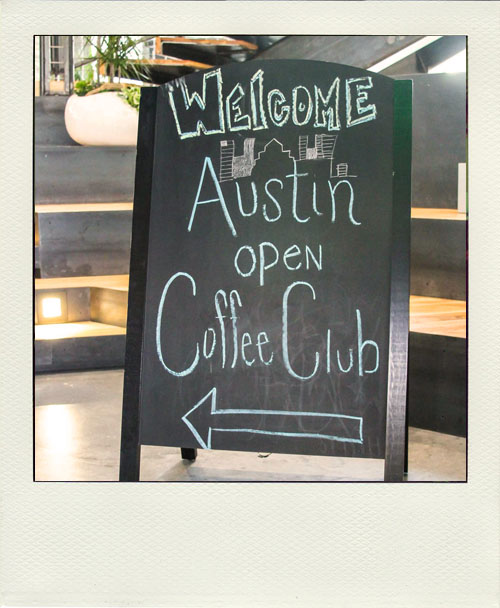 WELCOME
Austin
OPEN
Coffee Club